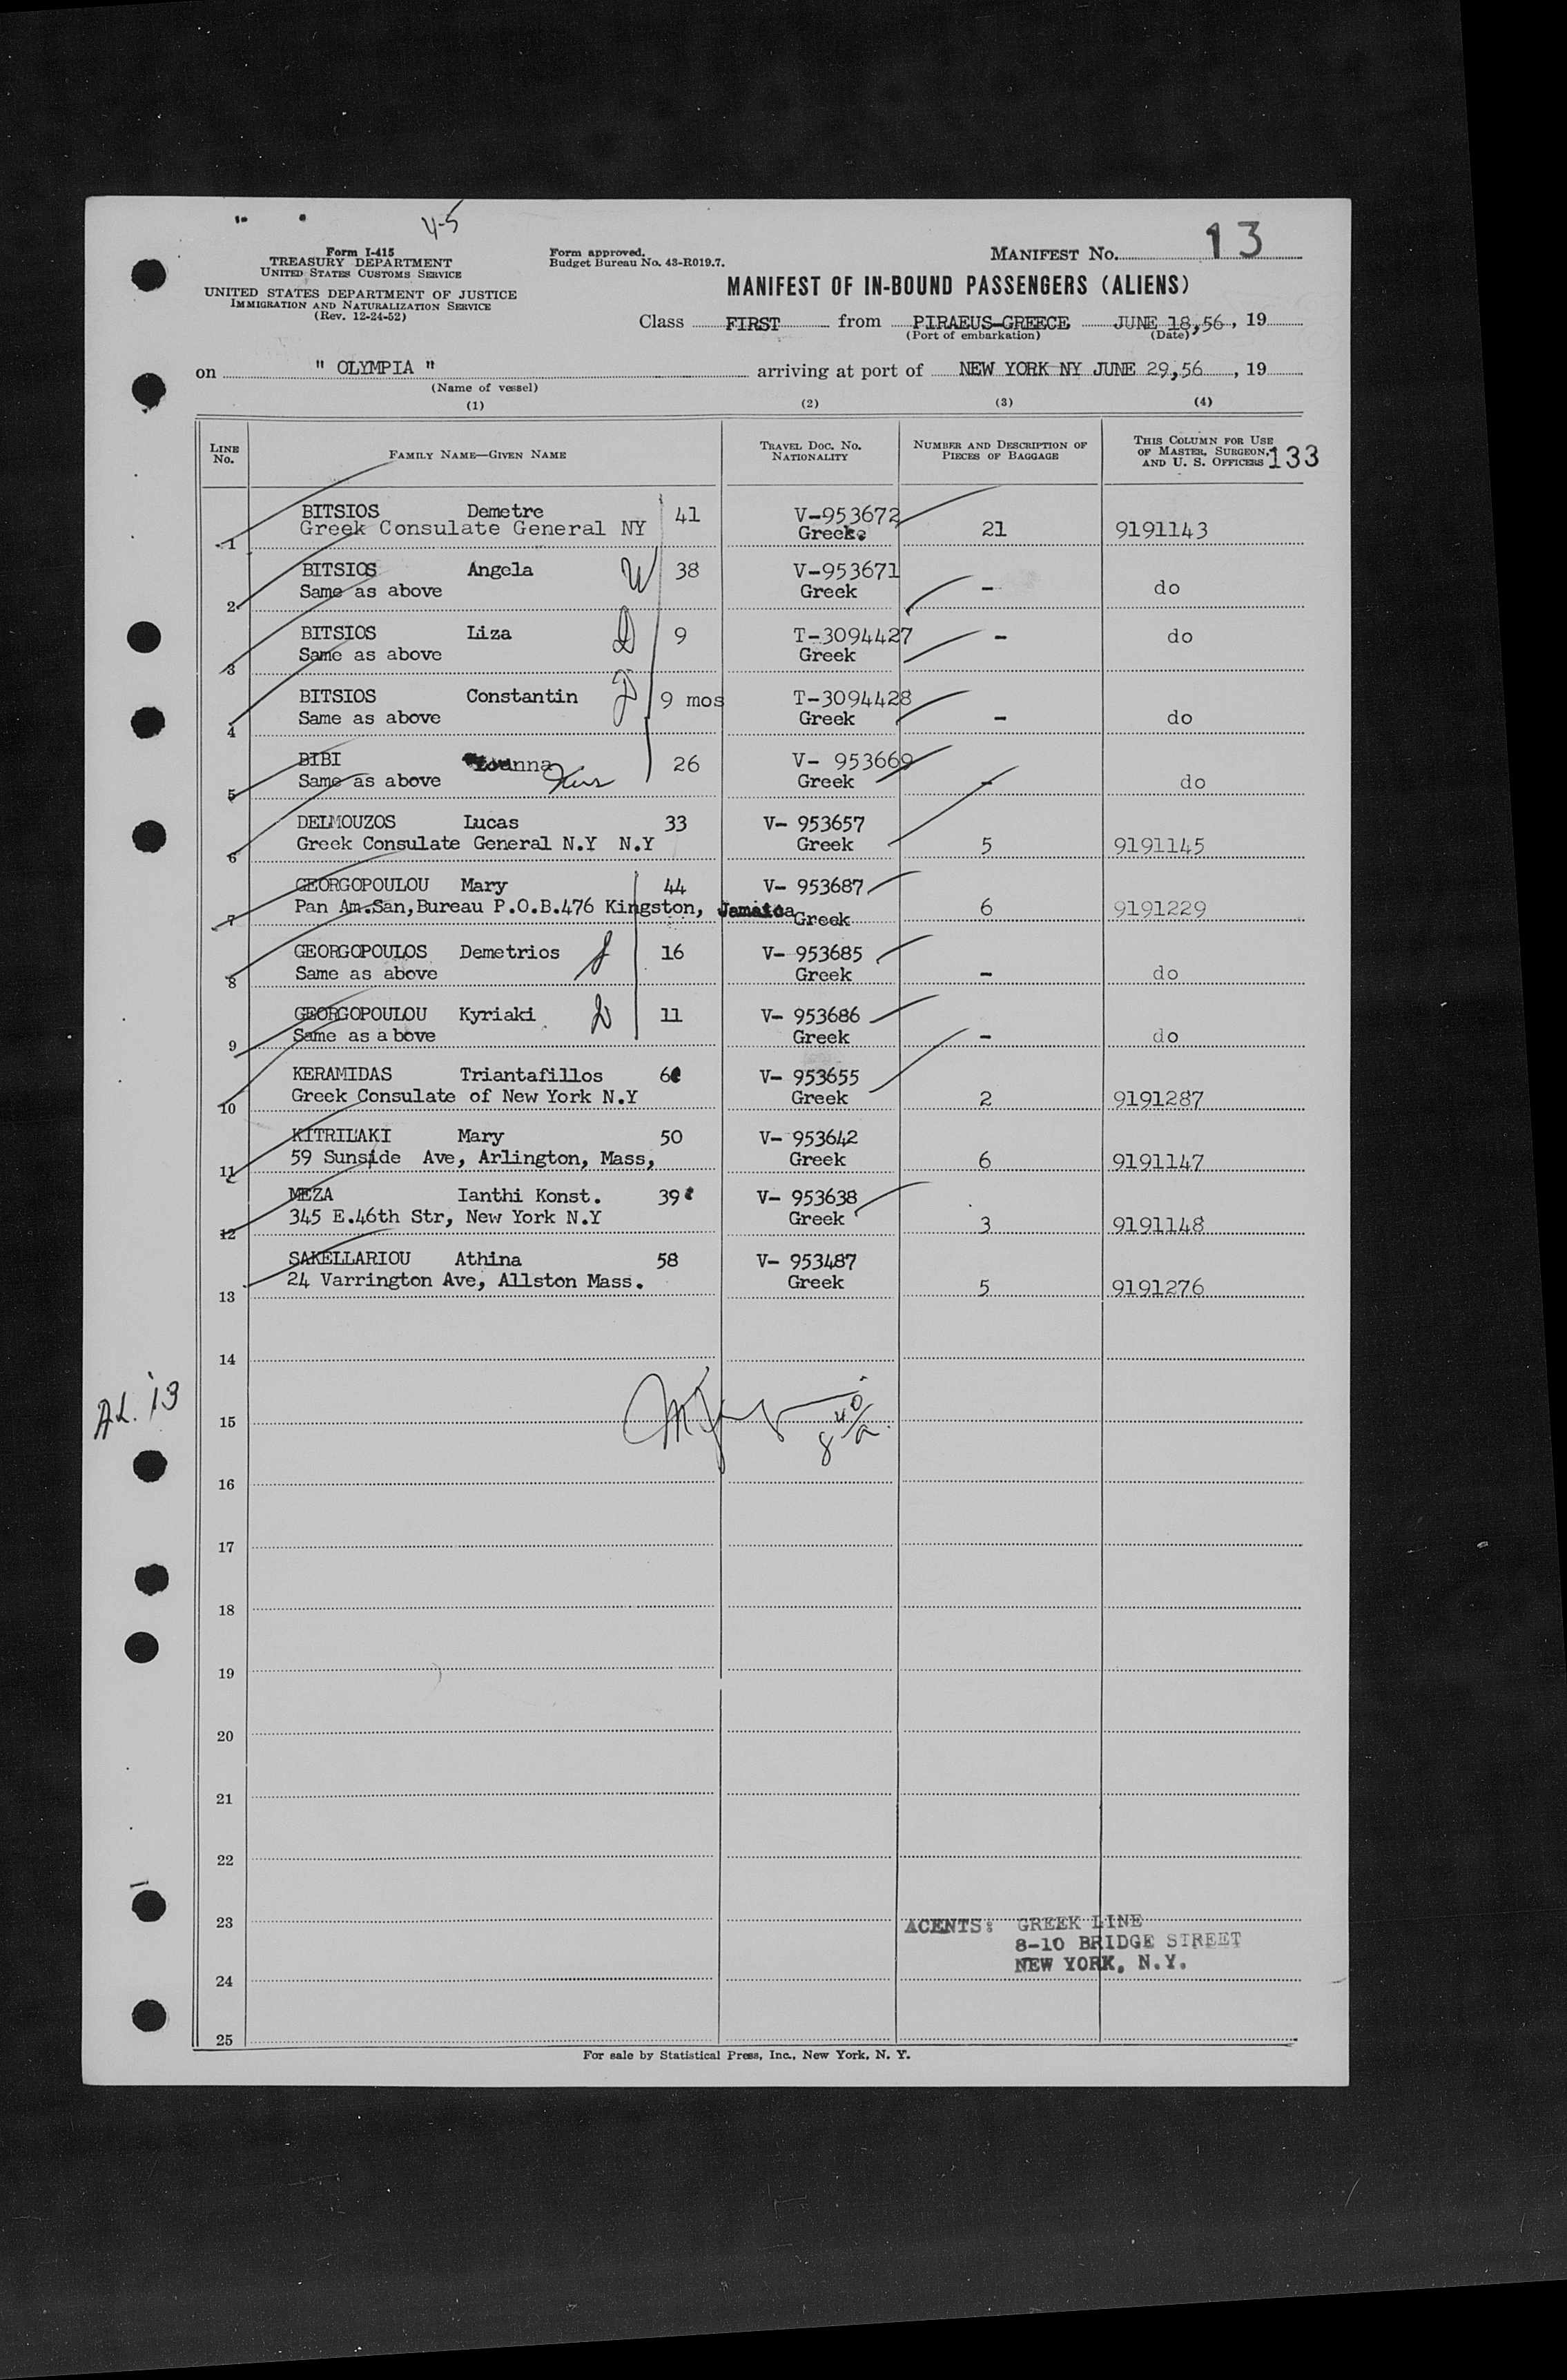 4-5
Form I-415
TREASURY DEPARTMENT
UNITED STATES CUSTOMS SERVICE
UNITED STATES DEPARTMENT OF JUSTICE
IMMIGRATION AND NATURALIZATION SERVICE
(Rev. 12-24-52)
Form approved.
Budget Bureau No. 43-R019.7.
MANIFEST NO. 13
MANIFEST OF IN-BOUND PASSENGERS (ALIENS)
Class FIRST from PIRAEUS-GREECE JUNE 18,56, 19
(Port of embarkation) (Date)
on " OLYMPIA " arriving at port of NEW YORK NY JUNE 29,56, 19
(Name of vessel)
(1) (2) (3) (4)
LINE No. FAMILY NAME—GIVEN NAME TRAVEL DOC. NO. NATIONALITY NUMBER AND DESCRIPTION OF PIECES OF BAGGAGE THIS COLUMN FOR USE OF MASTER, SURGEON, AND U. S. OFFICERS 133
BITSIOS Demetre 41 V-953672
1 Greek Consulate General NY Greek 21 9191143
BITSIOS Angela W 38 V-953671
2 Same as above Greek - do
BITSIOS Liza D 9 T-3094427
3 Same as above Greek - do
BITSIOS Constantin 9 mos T-3094428
4 Same as above Greek - do
BIBI 26 V- 953669
5 Same as above Greek - do
DELMOUZOS Lucas 33 V- 953657
6 Greek Consulate General N.Y N.Y Greek 5 9191145
GEORGOPOULOU Mary 44 V- 953687
7 Pan Am.San,Bureau P.O.B.476 Kingston, Jamaica Greek 6 9191229
GEORGOPOULOS Demetrios 16 V- 953685
8 Same as above Greek - do
GEORGOPOULOU Kyriaki D 11 V- 953686
9 Same as a bove Greek - do
KERAMIDAS Triantafillos V- 953655
10 Greek Consulate of New York N.Y Greek 2 9191287
KITRILAKI Mary 50 V- 953642
11 59 Sunside Ave, Arlington, Mass, Greek 6 9191147
MEZA Ianthi Konst. 39 V- 953638
12 345 E.46th Str, New York N.Y Greek 3 9191148
SAKELLARIOU Athina 58 V- 953487
13 24 Varrington Ave, Allston Mass. Greek 5 9191276
14
AL. 13
15
8 40/a.
16
17
18
19
20
21
22
23
AGENTS: GREEK LINE
8-10 BRIDGE STREET
NEW YORK, N.Y.
24
25
For sale by Statistical Press, Inc., New York, N. Y.